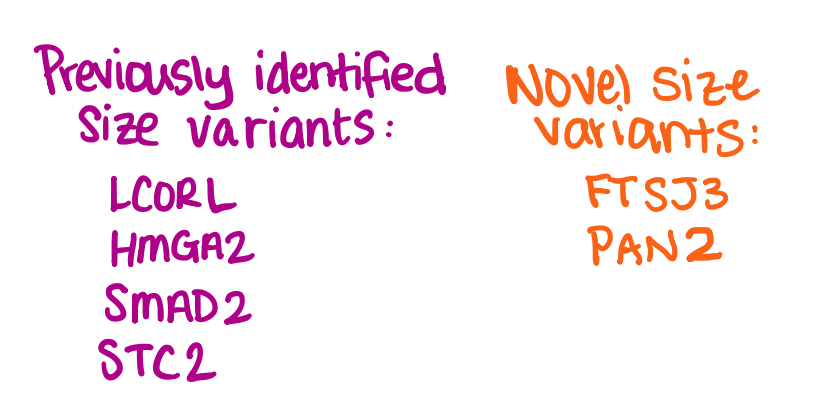 Previously identified
size variants:
LCORL
HMGA2
SMAD2
STC2
Novel size
variants:
FTSJ3
PAN2